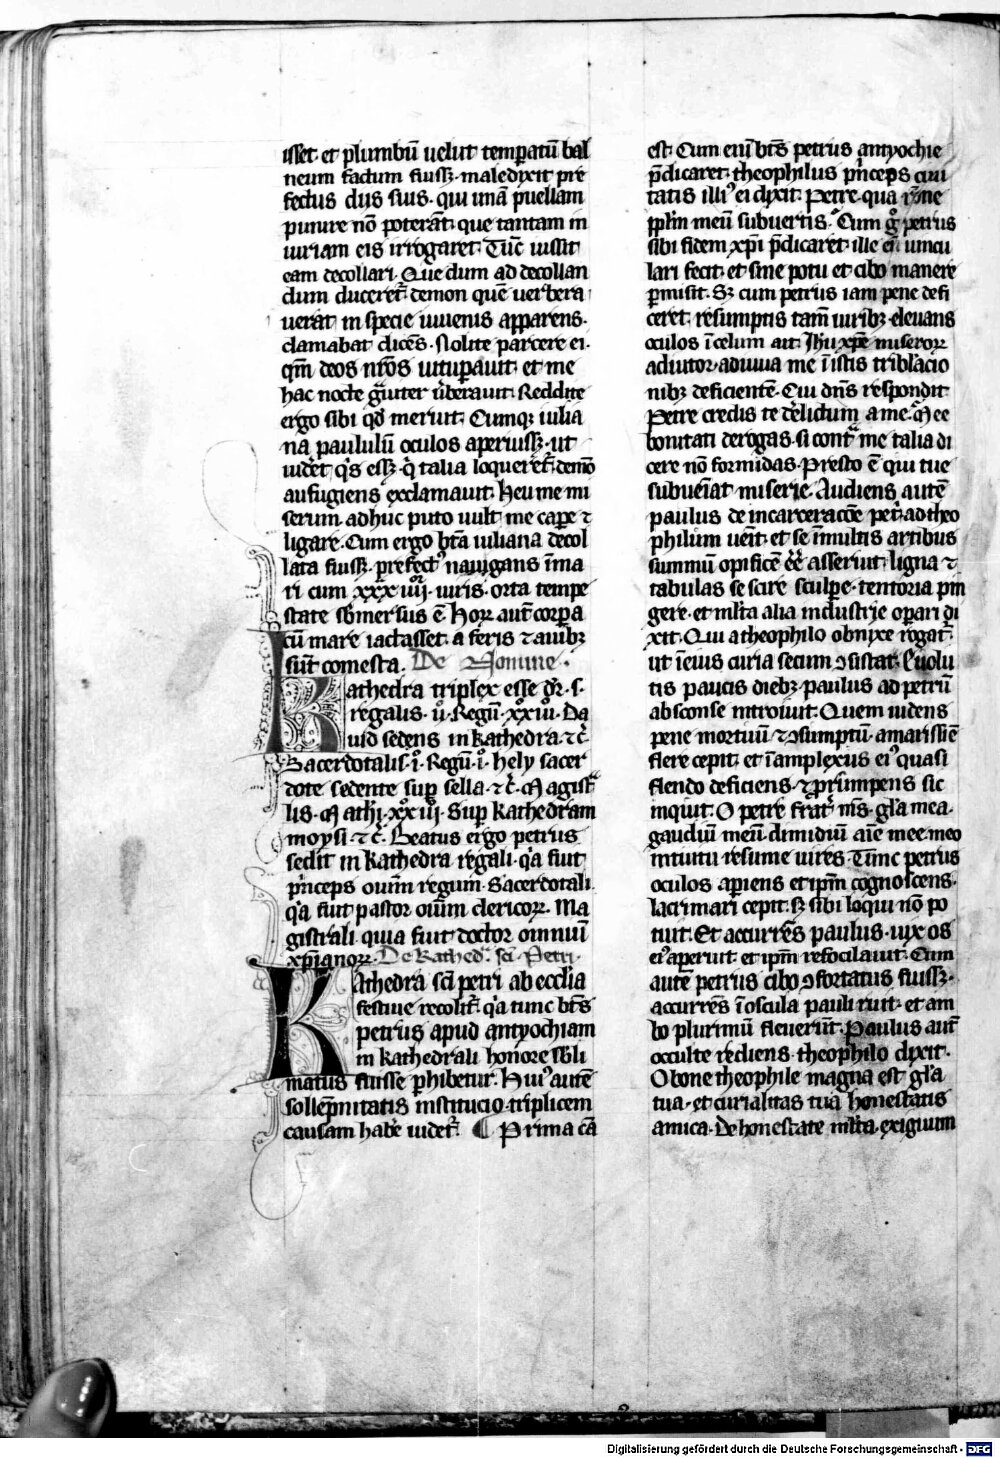 isset. et plumbū uelut temperatū bal
neum factum fuiss3. maledixit pre
fectus dijs suis. qui unā puellam
punire nō poterāt. que tantam in
iuriam eis irrogaret. Tūc iussit
eam decollari. Que dum ad decollan
dum duceret̄. demon quē uerbera
uerat in specie iuuenis apparens.
clamabat dicēs. Nolite parcere ei.
qm̄ deos nr̄os uituperauit. et me
hac nocte grauiter ūberauit. Reddite
ergo sibi qd̄ meruit. Cumq3 iulia
na paululū oculos aperuiss3. ut
uidēt qͥs ess3. qͥ talia loqueret̄. demō
aufugiens exclamauit. Heu me mi
serum. adhuc puto uult me cape ⁊
ligare. Cum ergo btā iuliana decol
lata fuiss3. prefectꝰ nauigans ī ma
ri cum xxxiiij. uiris. orta tempe
state sb̄mersus ē. Hoꝝ aut̄ corpa
cū mare iactasset. a feris ⁊ auib3
sūt comesta. De Nomine.
Kathedra triplex esse dr̄. s.
regalis. ij. Regū. xxiij. Da
uid sedens in kathedra. ⁊c̄.
Sacerdotalis. i. Regū. i. hely sacer
dote sedente sup sella. ⁊c̄. Magistra
lis. Mathi. xxiij. Sup kathedram
moysi. ⁊c̄. Beatus ergo petrus
sedit in kathedra regali. qͣ fuit
p̄nceps oīum regum. Sacerdotali.
qͣ fuit pastor oīum clericoꝝ. Ma
gistrali. quia fuit doctor omniū
xp̄ianoꝝ. De Kathedͣ. sc̄i Petri.
Kathedra sc̄i petri ab ecclia
festiue recolit̄. qͣ tunc bt̄s
petrus apud antyochiam
in kathedrali honore sb̄li
matus fuisse phibetur. Huiꝰ autē
sollēpnitatis institucio. triplicem
causam habē uidet̄. ¶ Prima cā
est. Cum enī bt̄s petrus antyochie
p̄dicaret. theophilus p̄nceps ciui
tatis illiꝰ ei dixit. Petre. qua rōne
pp̄lm meū subuertis. Cum gͦ petrus
sibi fidem xp̄i p̄dicaret. ille eū uincu
lari fecit. et sine potu et cibo manere
pmisit. S3 cum petrus iam pene defi
ceret. resumptis tam̄ uirib3. eleuans
oculos ī celum ait. Ihu xp̄e miseroꝝ
adiutor. adiuua me ī istis tribl̄acio
nib3 deficientē. Cui dn̄s respondit.
Petre credis te d̄elictum a me. Mee
bonitati derogas. si contͣ me talia di
cere nō formidas. Presto ē qui tue
subueīat miserie. Audiens autē
paulus de incarceracōe petͥ. ad theo
philum uēit. et se ī multis artibus
summū opificē ēē asseruit. ligna ⁊
tabulas se scire sculpe. tentoria pin
gere. et ml̄ta alia industrie opari di
xit. Qui a theophilo obnixe rogatͬ.
ut ī eius curia secum ꝯsistat. Euolu
tis paucis dieb3. paulus ad petrū
absconse introiuit. Quem uidens
pene mortuū ⁊ ꝯsumptū. amarissīe
flere cepit. et ī amplexus eiꝰ quasi
flendo deficiens. ⁊ prūmpens sic
inquit. O petre frat̄ mī. gl̄a mea.
gaudiū meū. dimidiū aīe mee. meo
intuitu resume uires. Tunc petrus
oculos apiens et ip̄m cognoscens.
lacrimari cepit. s3 sibi loqui nō po
tuit. Et accurrēs paulus. uix os
eiꝰ aperuit. et ip̄m refocilauit. Cum
autē petrus cibo ꝯfortatus fuiss3.
accurrēs ī oscula pauli ruit. et am
bo plurimū fleuerūt. Paulus aut̄
occulte rediens. theophilo dixit.
O bone theophile magna est gl̄a
tua. et curialitas tua honestatis
amica. De honestate ml̄ta. exiguum
Digitalisierung gefördert durch die Deutsche Forschungsgemeinschaft - DFG